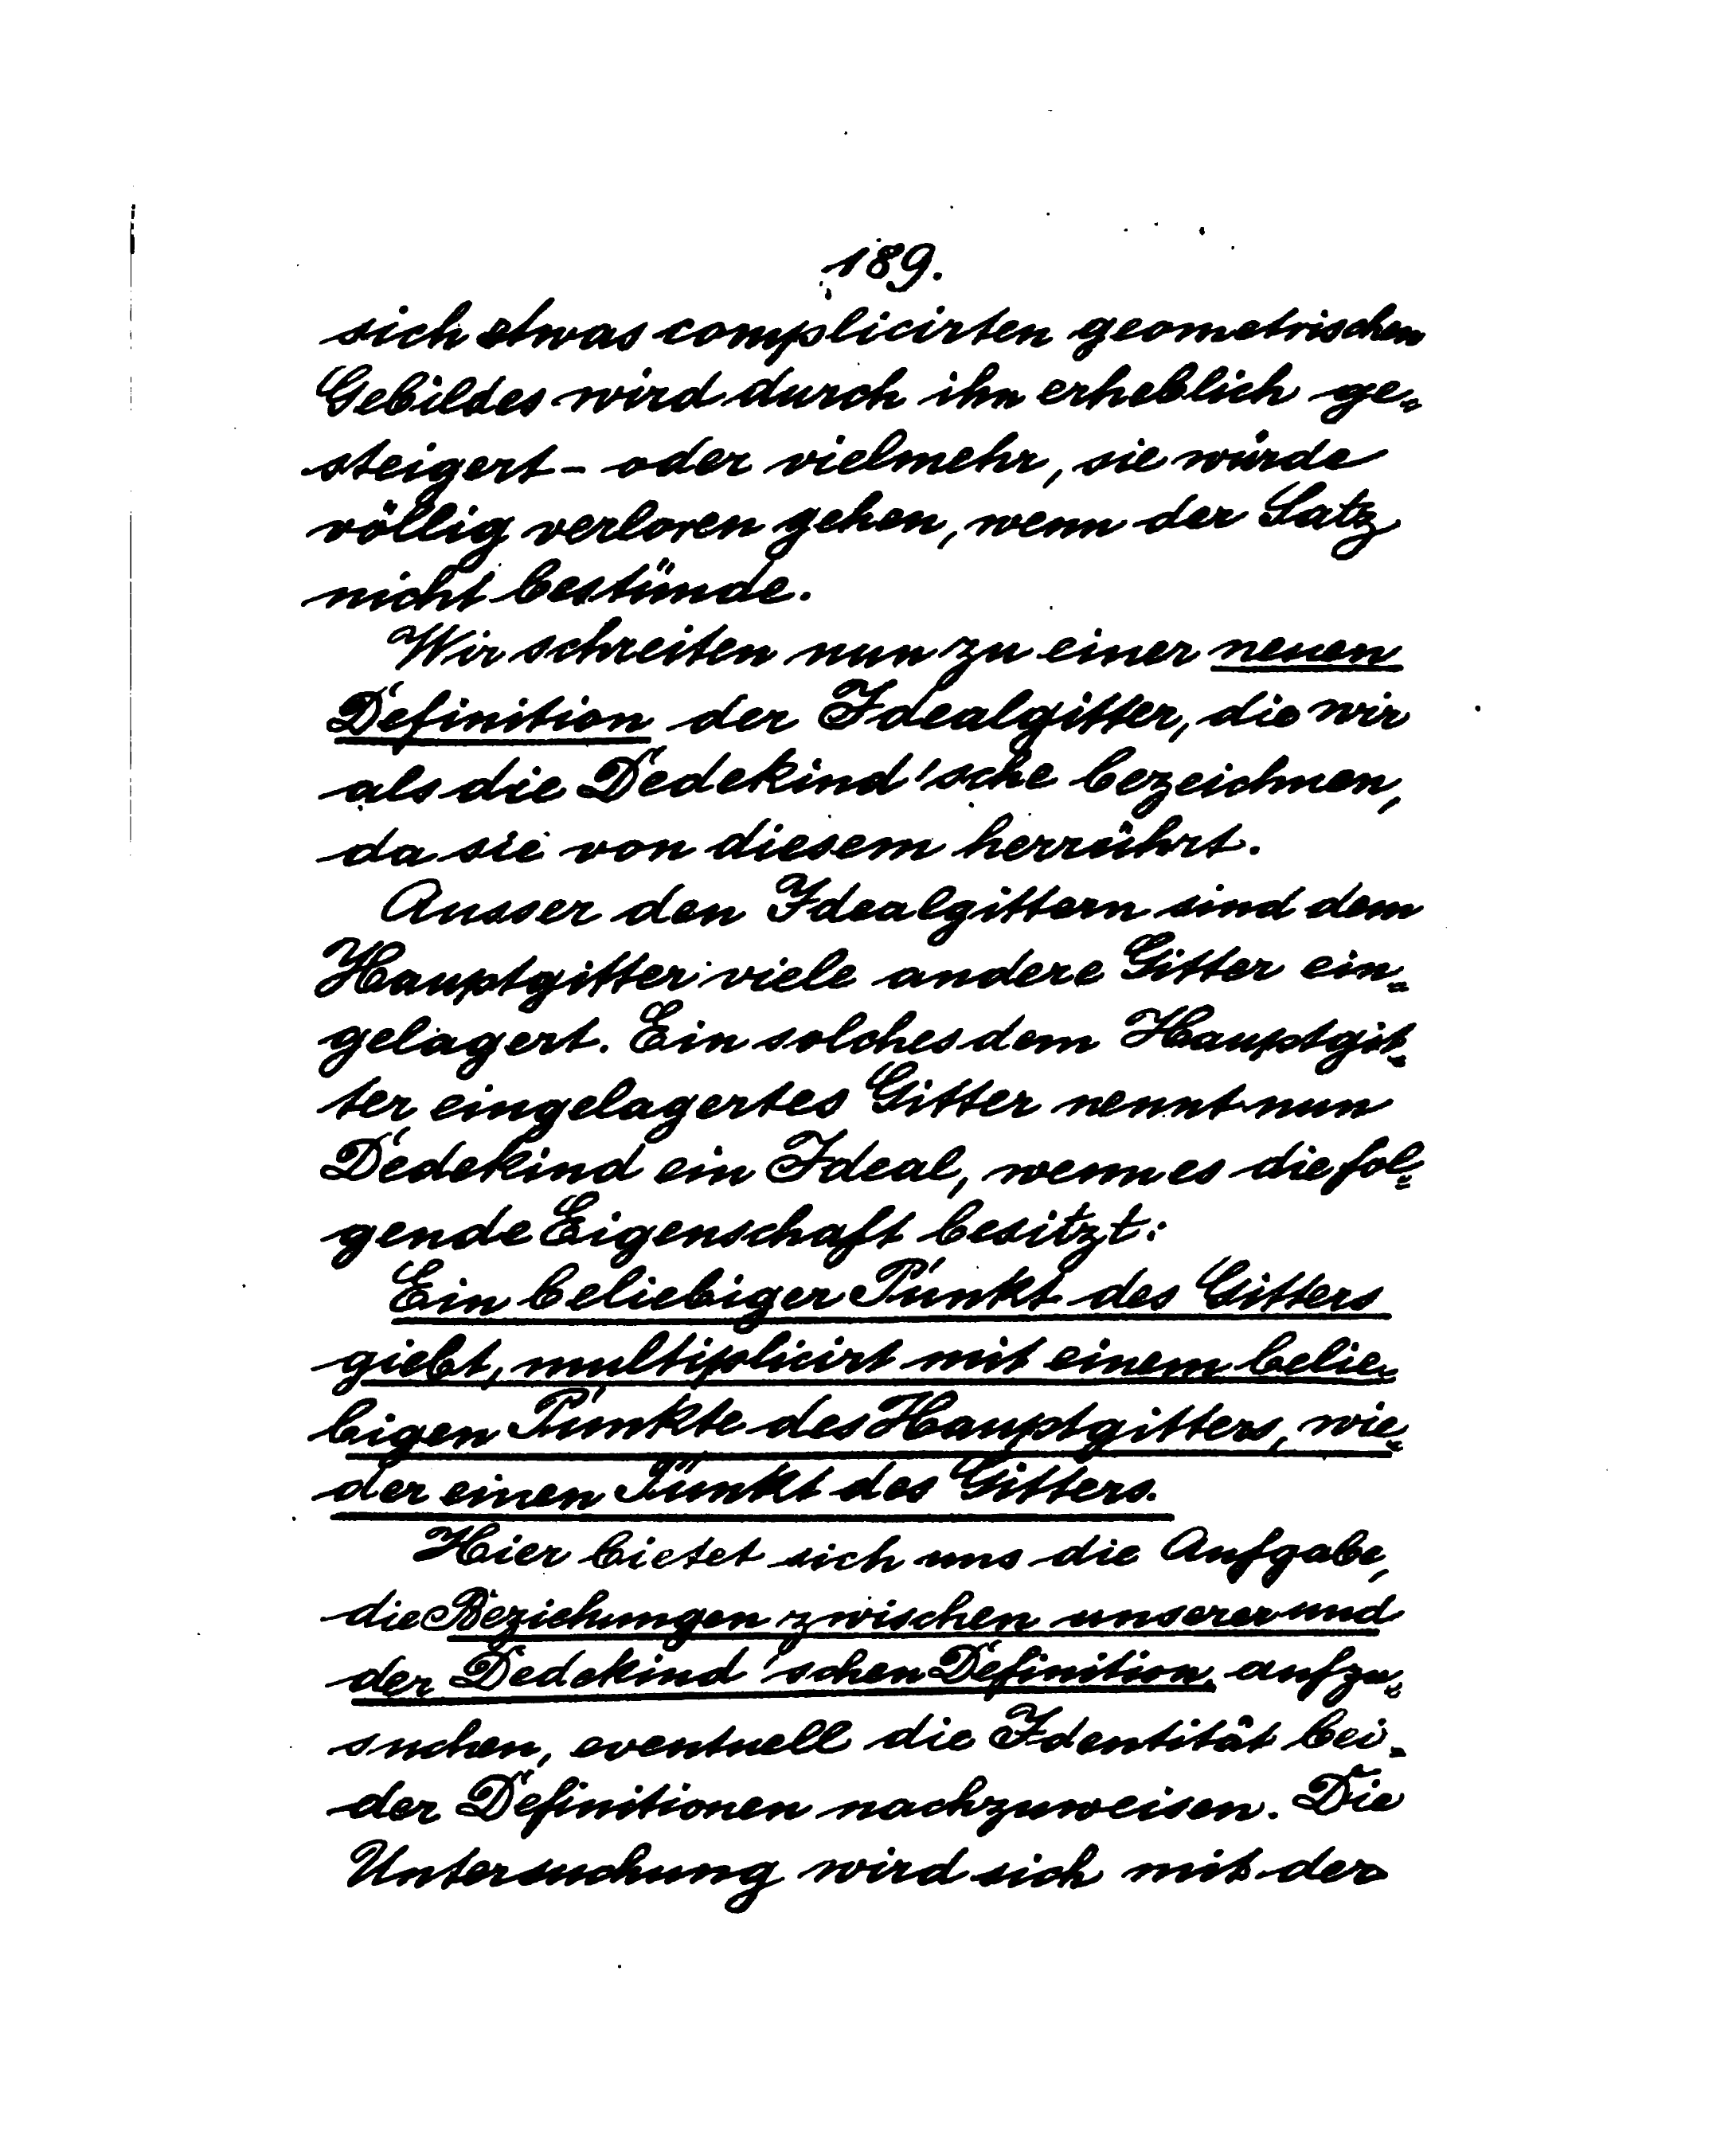 189.
sich etwas complicirten geometrischen
Gebildes wird durch ihn erheblich ge-
steigert - oder vielmehr, sie würde
völlig verloren gehen, wenn der Satz
nicht bestünde.
Wir schreiten nun zu einer neuen
Definition der Idealgitter, die wir
als die Dedekind'sche bezeichnen,
da sie von diesem herrührt.
Ausser den Idealgittern sind dem
Hauptgitter viele andere Gitter ein-
gelagert. Ein solches dem Hauptgit-
ter eingelagertes Gitter nennt nun
Dedekind ein Ideal, wenn es die fol-
gende Eigenschaft besitzt:
Ein beliebiger Punkt des Gitters
giebt, multiplicirt mit einem belie-
bigen Punkte des Hauptgitters, wie-
der einen Punkt des Gitters.
Hier bietet sich uns die Aufgabe,
die Beziehungen zwischen unserer und
der Dedekind'schen Definition aufzu-
suchen, eventuell die Identität bei-
der Definitionen nachzuweisen. Die
Untersuchung wird sich mit der